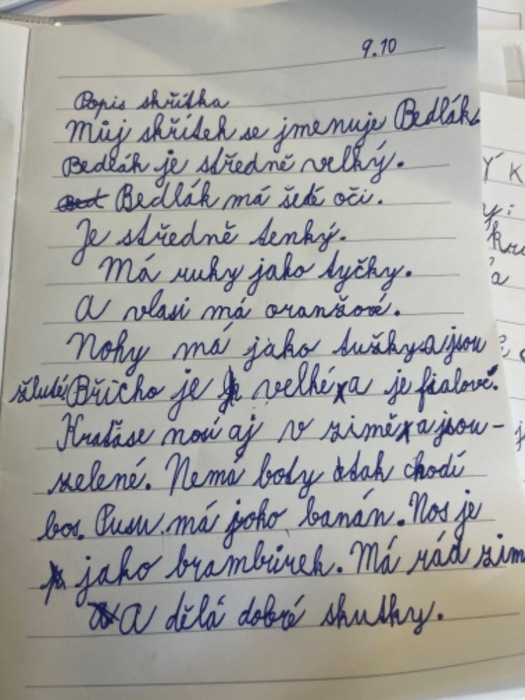 9.10
Popis skřítka
Můj skřítek se jmenuje Bedlák
Bedlák je středně velký.
Bedlák má šedé oči.
Je středně tenký.
Má ruky jako tyčky.
A vlasi má oranžové.
Nohy má jako tužky a jsou
žluté. Břicho je velké a je fialové.
Kraťase nosí aj v zimě a jsou-
zelené. Nemá boty a tak chodí
bos. Pusu má joho banán. Nos je
jako brambůrek. Má rád zim
A dělá dobré skutky.